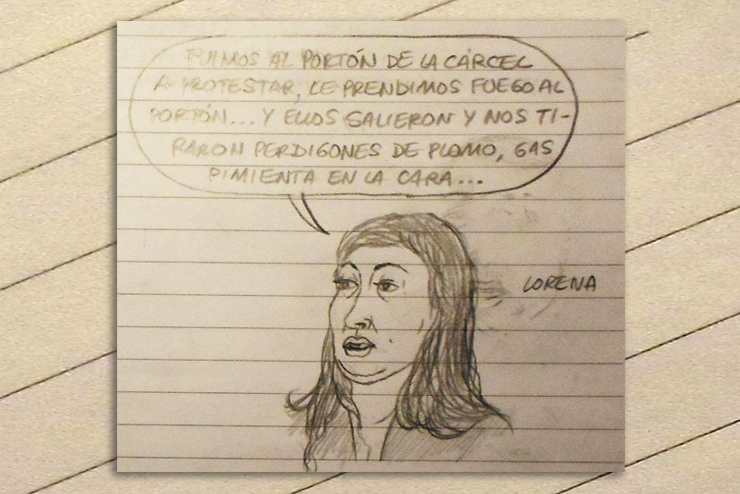 FUIMOS AL PORTÓN DE LA CÁRCEL
A PROTESTAR, LE PRENDIMOS FUEGO AL
PORTÓN... Y ELLOS SALIERON Y NOS TI-
RARON PERDIGONES DE PLOMO, GAS
PIMIENTA EN LA CARA...
LORENA